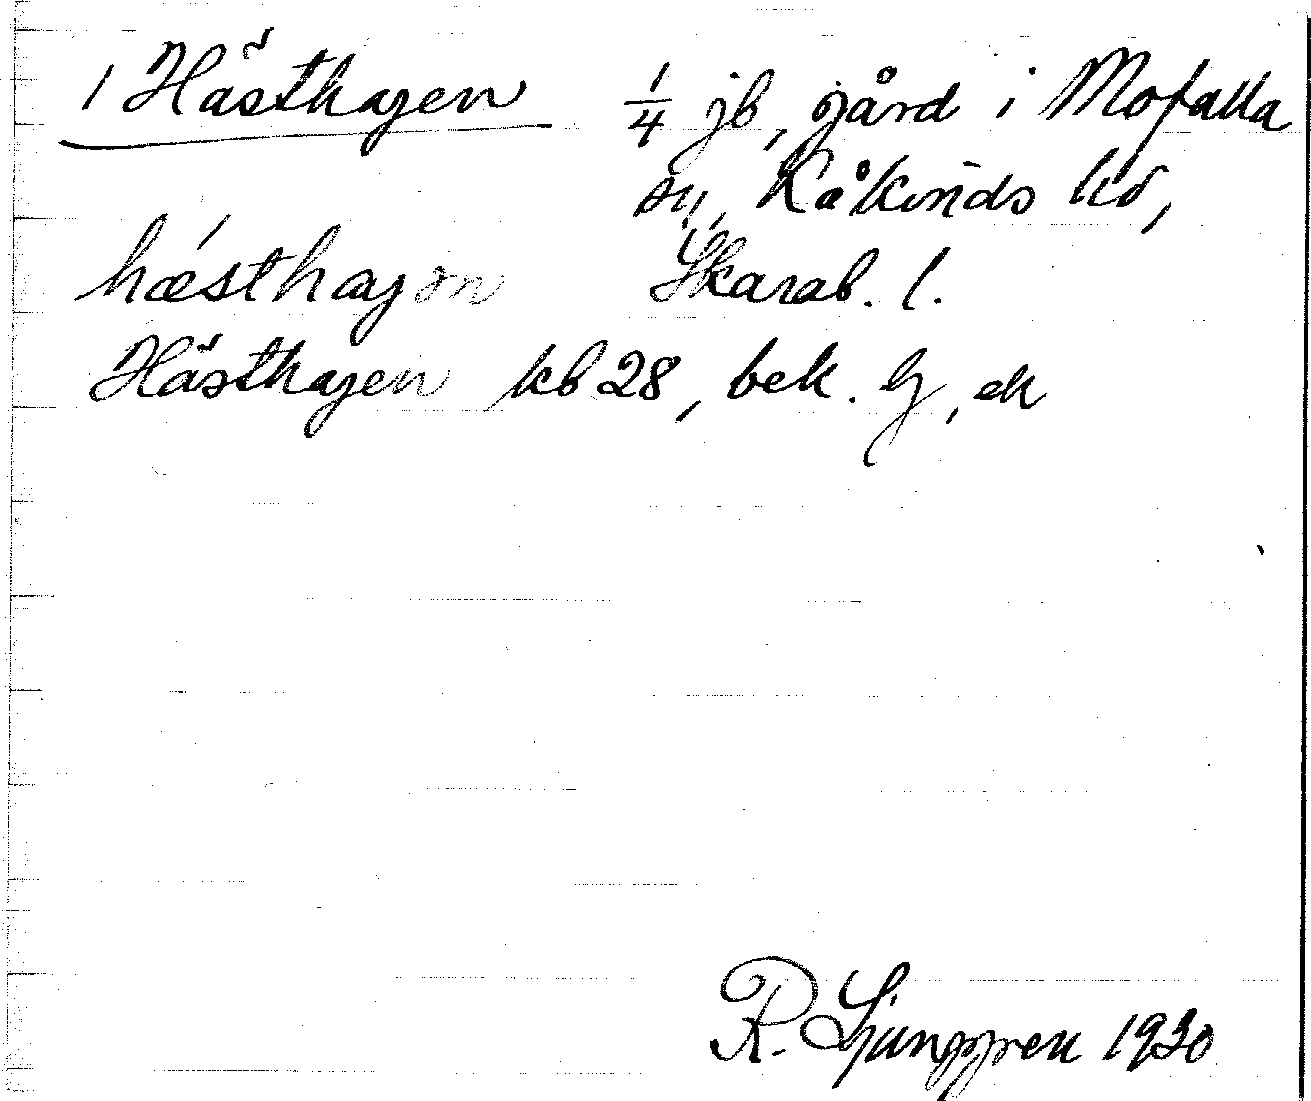 1 Hästhagen 1/4 jb, gård i Mofalla
sn, Kåkinds hd,
hæ´sthagɔn Skarab. l.
Hästhagen kb 28, bek. G, ek
R. Ljunggren 1930